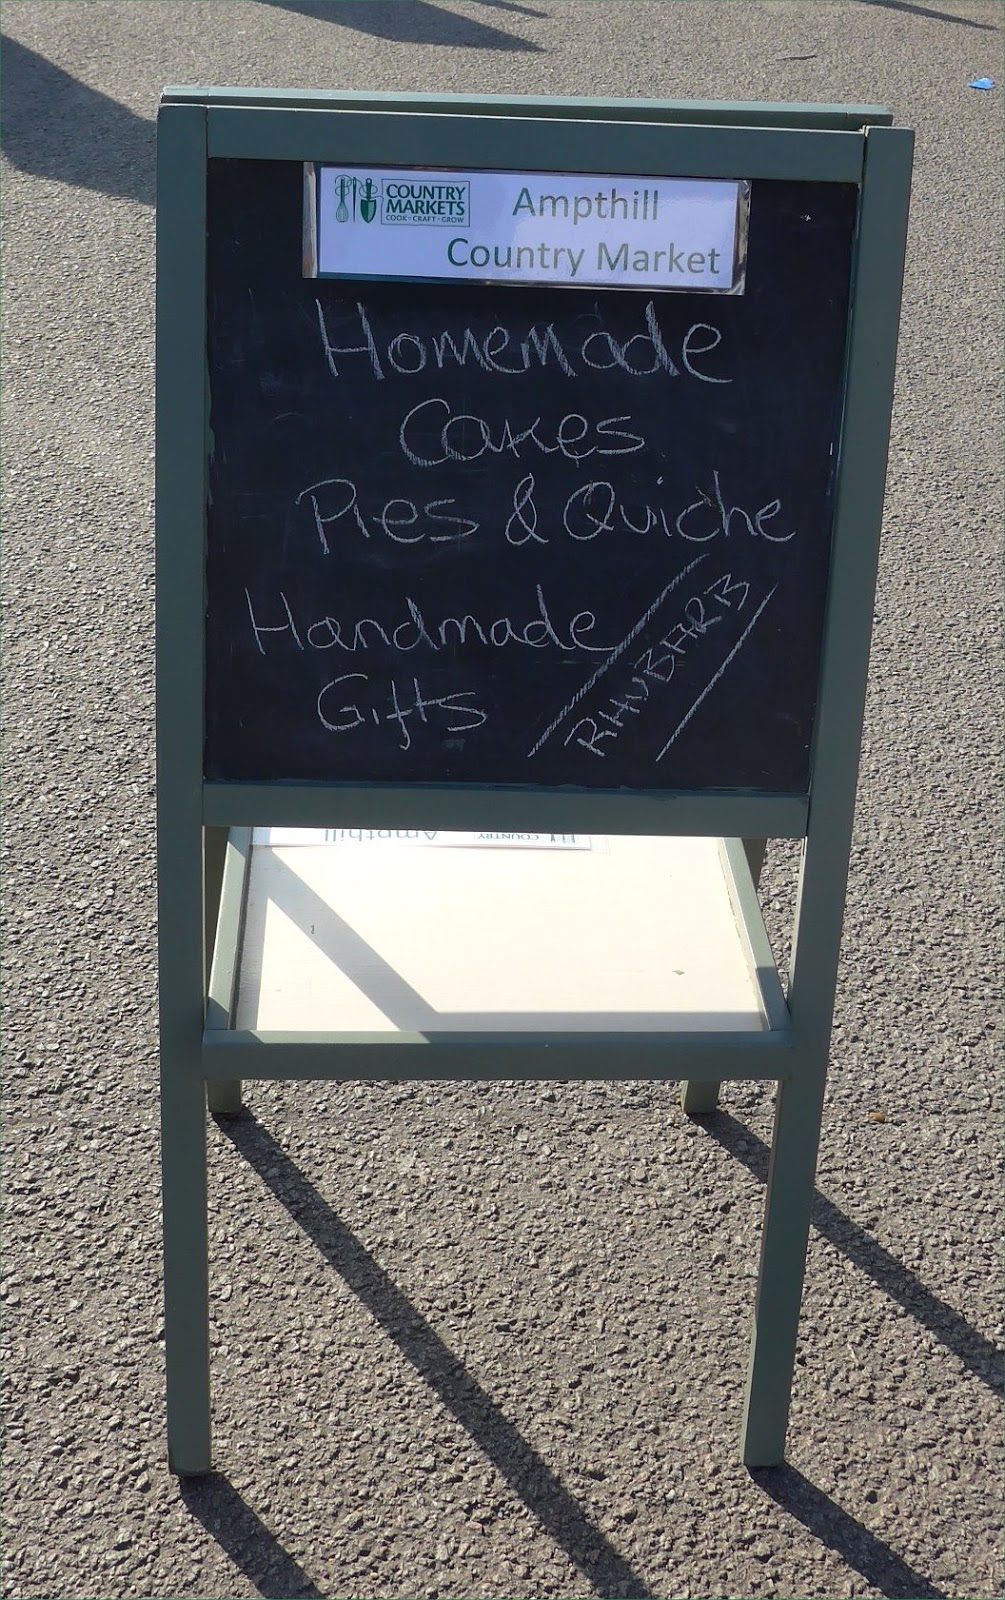 COUNTRY
MARKETS
COOK · CRAFT · GROW
Ampthill
Country Market
Homemade
Cakes
Pies & Quiche
Handmade
Gifts
RHUBARB
Ampthill
COUNTRY